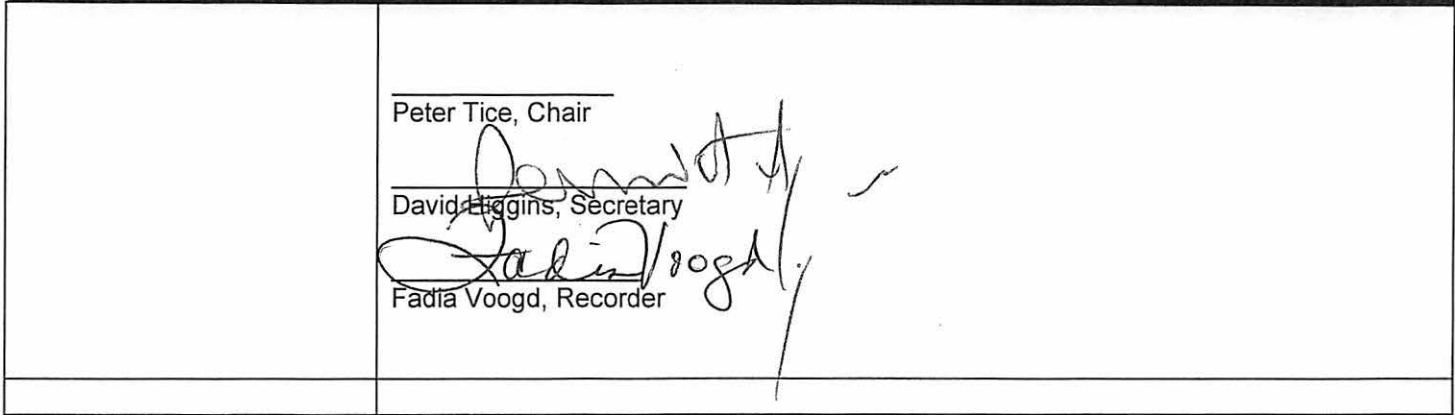 Peter Tice, Chair
David Higgins, Secretary
Fadia Voogd
Fadia Voogd, Recorder